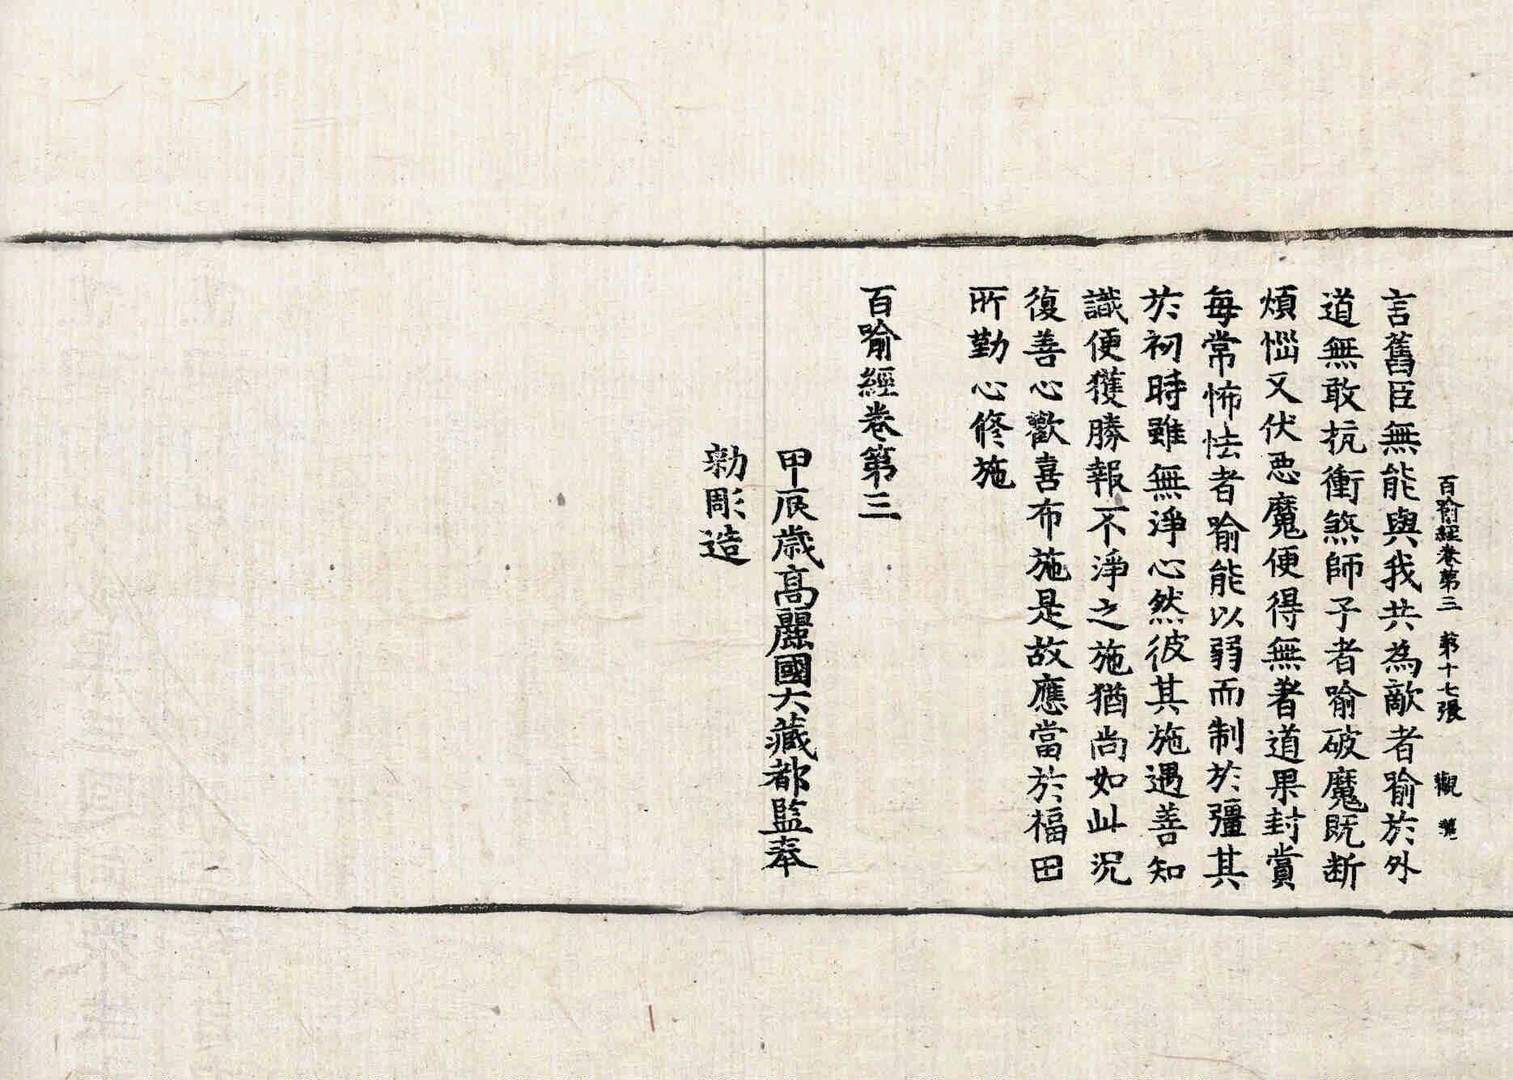 百喻經卷第三　第十七張　觀
言舊臣無能與我共為敵者喻於外
道無敢抗衝煞師子者喻破魔既断
煩惱又伏惡魔便得無著道果封賞
每常怖怯者喻能以弱而制於彊其
於初時雖無淨心然彼其施遇善知
識便獲勝報不淨之施猶尚如此況
復善心歡喜布施是故應當於福田
所勤心修施
百喻經卷第三
甲辰歳高麗國大藏都監奉
勅彫造